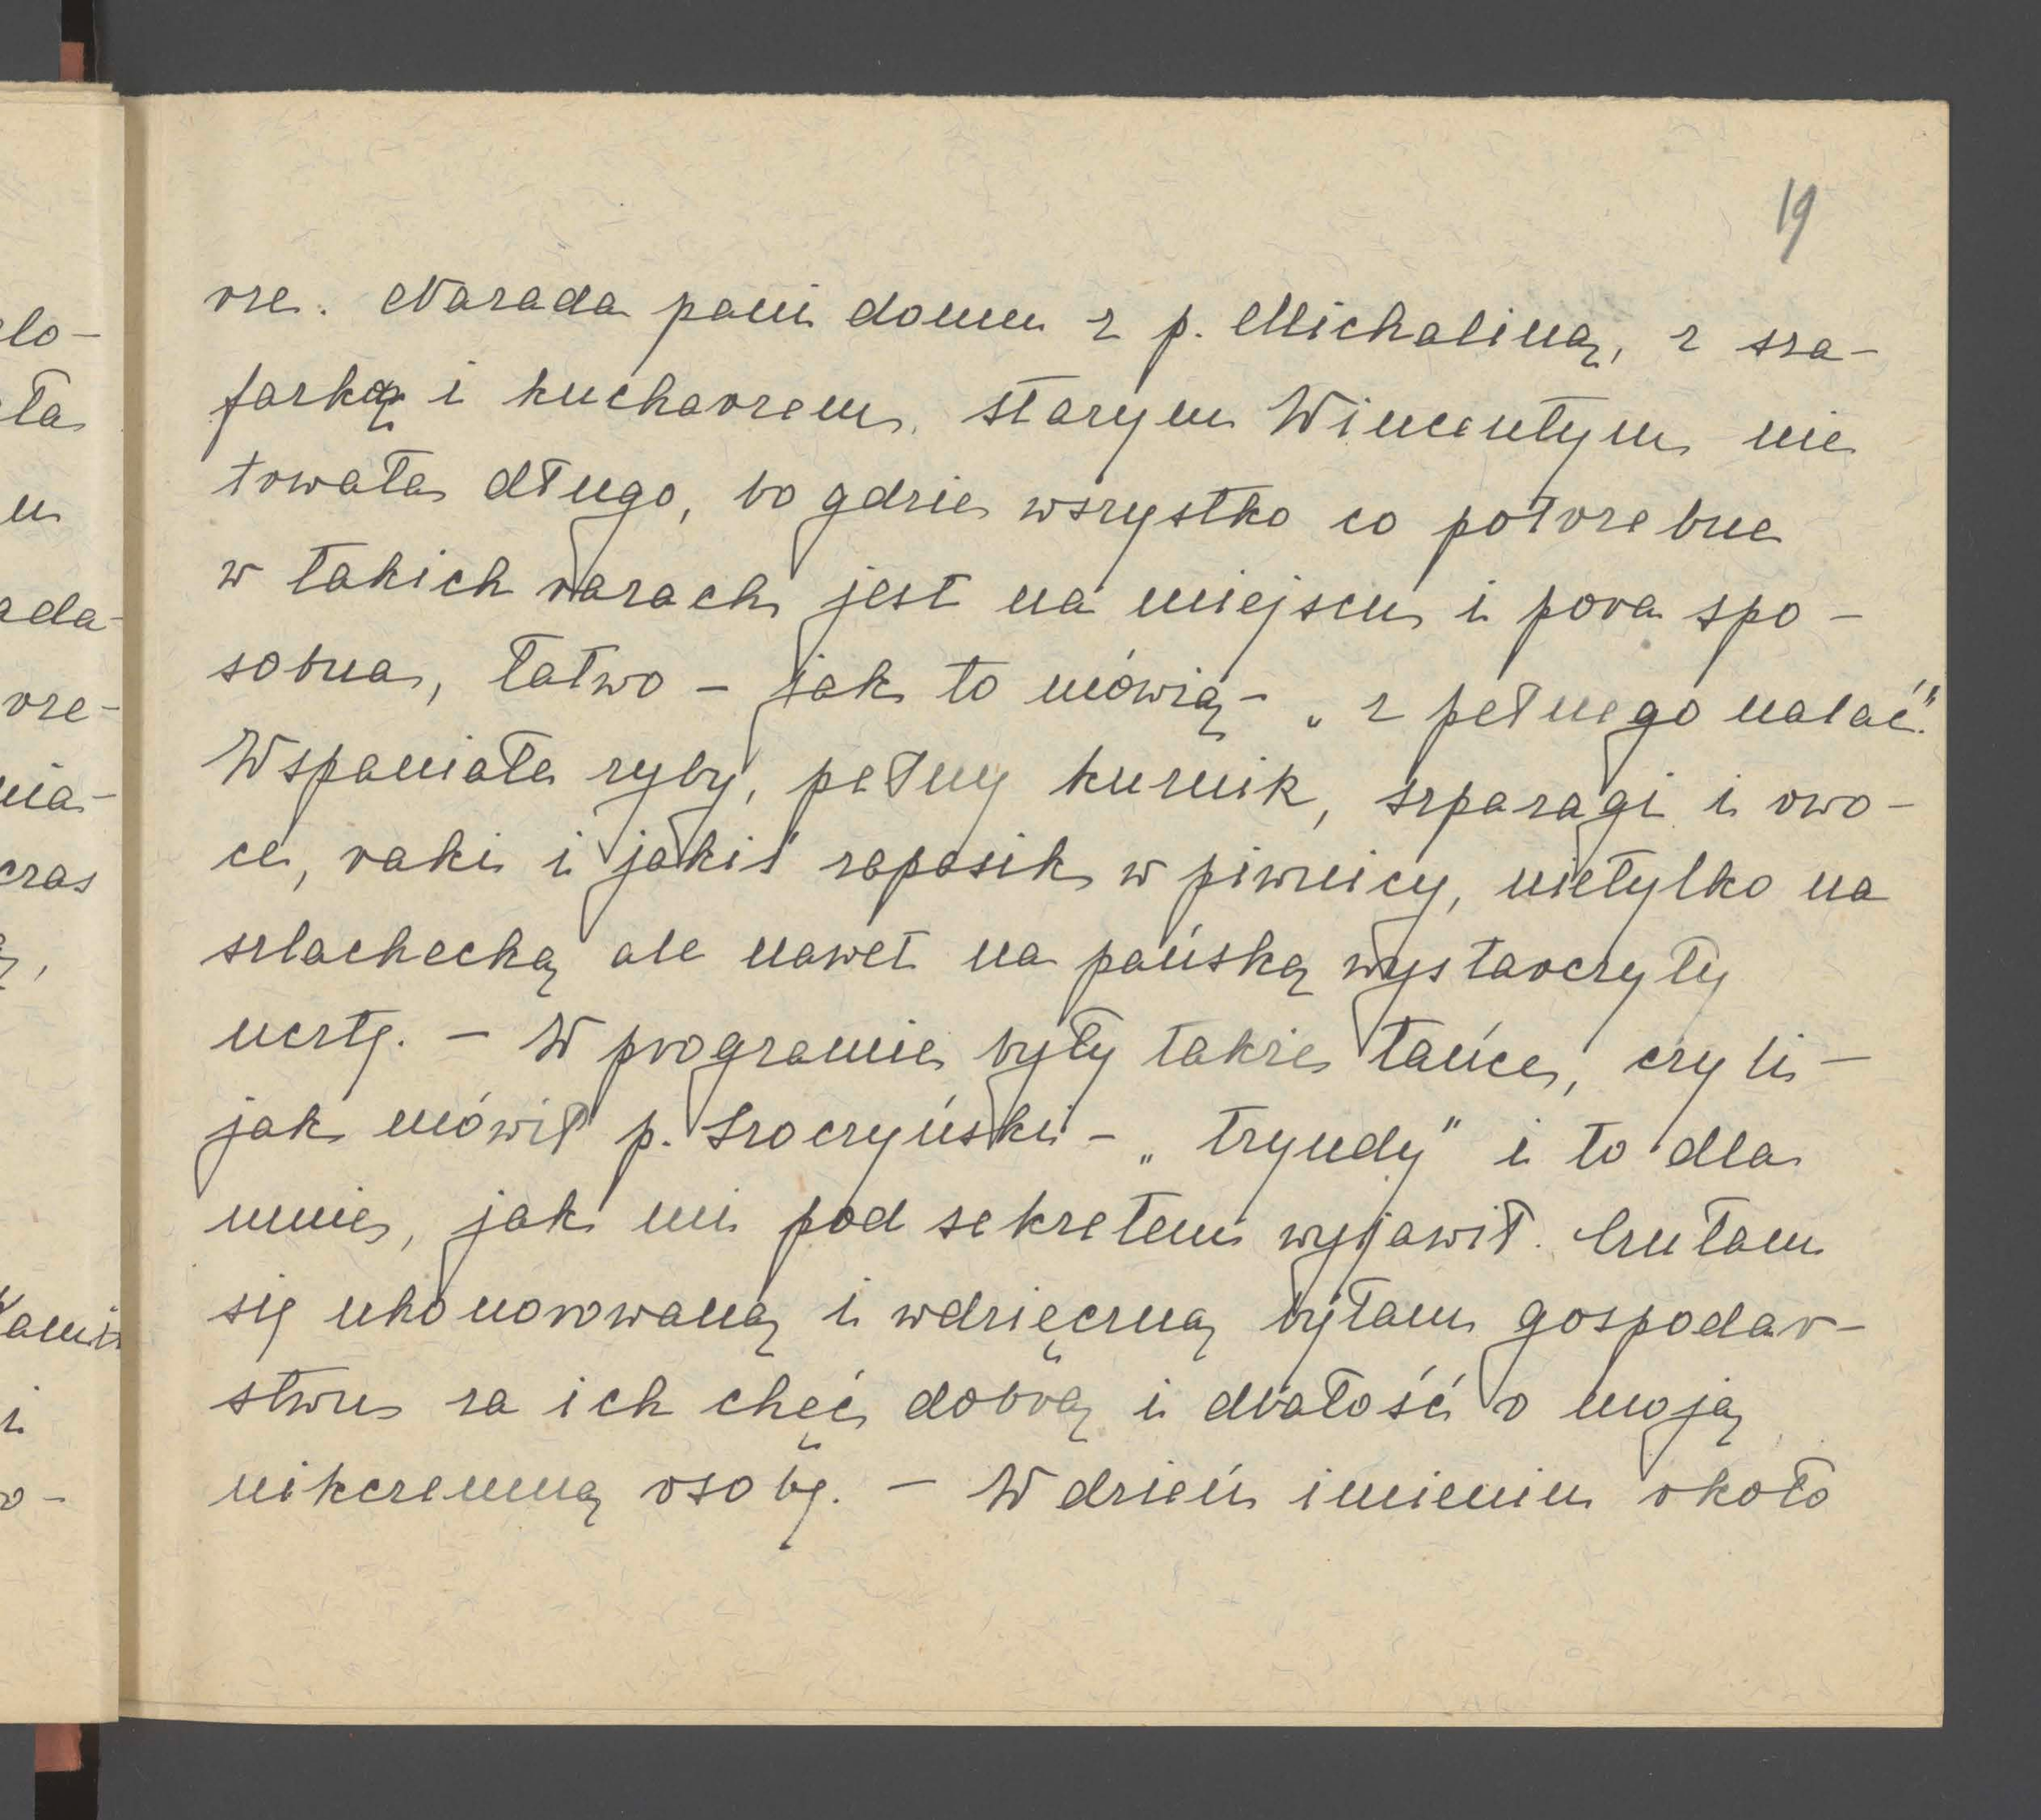 19
rze. Narada pani domu z p. Michaliną, z sza-
farką i kucharzem, starym Wincentym nie
trwała długo, bo gdzie wszystko co potrzebne
w takich razach jest na miejscu i pora spo-
sobna, łatwo – jak to mówią – „z pełnego nalać".
Wspaniałe ryby, pełny kurnik, szparagi i owo-
ce, raki i jakiś zapasik w piwnicy, nietylko na
szlachecką ale nawet na pańską wystarczyły
ucztę. – W programie były także tańce, czyli –
jak mówił p. Sroczyński – „tryndy" i to dla
mnie, jak mi pod sekretem wyjawił. Czułam
się uhonorowaną i wdzięczną byłam gospodar-
stwu za ich chęć dobrą i dbałość o moją
nikczemną osobę. – W dzień imienin około
lo-
ła
u
ada-
rze-
nia-
czas
ę,
i
o-